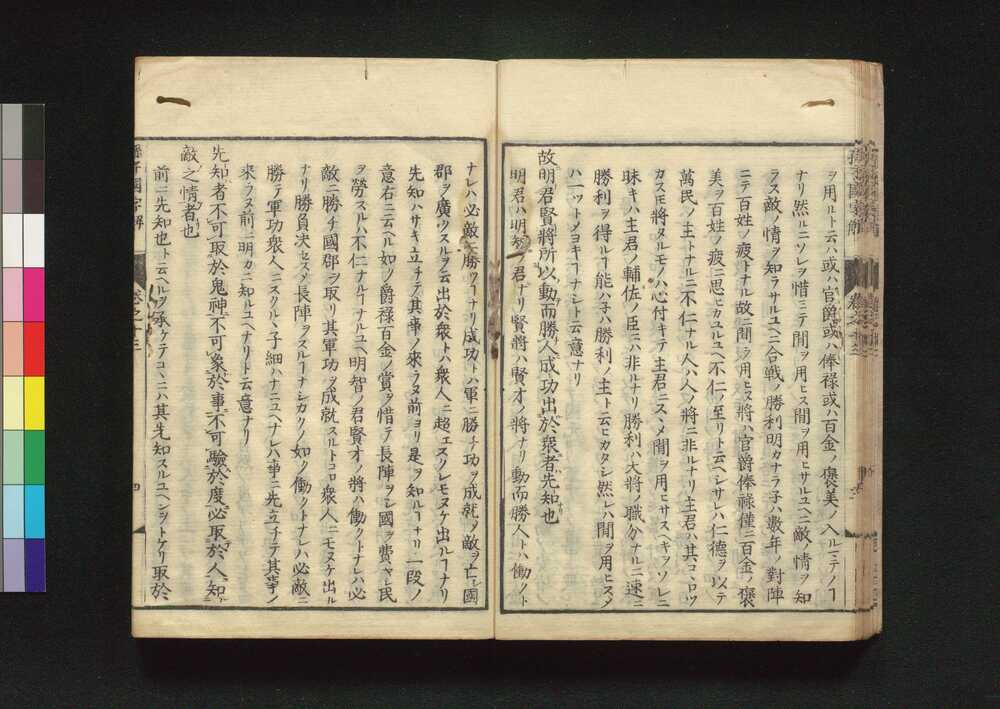 ヲ用ルト云ハ或ハ官爵或ハ俸禄或ハ百金ノ褒美ノ入ルニテノヿ
ナリ然ルニソレヲ惜ミテ間ヲ用ヒス間ヲ用ヒサルユヘニ敵ノ情ヲ知
ラス敵ノ情ヲ知ラサルユヘニ合戦ノ勝利明カナラ子ハ數年ノ對陣
ニテ百姓ノ疲トナル故ニ間ヲ用ヒヌ將ハ官爵俸禄僅ニ百金ノ褒
美ヲ百姓ノ疲ニ思ヒカユルユヘ不仁ノ至リト云ヘシサレハ仁德ヲ以テ
萬民ノ主トナルニ不仁ナル人ハ人ノ將ニ非ルナリ主君ハ其コヽロツ
カス𪜈將タルモノハ心付キテ主君ニスヽメ間ヲ用ヒサスヘキヲソレニ
昧キハ主君ノ輔佐ノ臣ニハ非ルナリ勝利ハ大將ノ職分ナルニ速ニ
勝利ヲ得ルヿ能ハ子ハ勝利ノ主ト云ヒカタシ然レハ間ヲ用ヒスメ
ハ一ツトメヨキヿナシト云意ナリ
故明君賢將所以動而勝人成功出於衆者先知也
明君ハ明智ノ君ナリ賢將ハ賢才ノ將ナリ動而勝人トハ働クト
ナレハ必敵ニ勝ツヿナリ成功トハ軍ニ勝チ功ヲ成就メ敵ヲ亡シ國
郡ヲ廣クスルヲ云出於衆トハ衆人ニ超エスクレモヌケ出ルヿナリ
先知ハサキ立チテ其事ノ來ラヌ前ヨリ是ヲ知ルヿナリ一段ノ
意右ニ云ヘル如ク爵禄百金ノ賞ヲ惜テ長陣ヲシ國ヲ費ヤシ民
ヲ勞スルハ不仁ナルヿナルユヘ明智ノ君賢才ノ將ハ働クトナレハ必
敵ニ勝チ國郡ヲ取リ其軍功ヲ成就スルトコロ衆人ニモヌケ出ル
ナリ勝負決セスメ長陣ヲスルヿナシカクノ如ク働クトナレハ必敵ニ
勝テ軍功衆人ニスクルヽ子細ハナニユヘナレハ事ニ先立チテ其事ノ
來ラヌ前ニ明カニ知ルユヘナリト云意ナリ
先知者不可取於鬼神不可象於事不可驗於度必取於人知
敵之情者也
前ニ先知也ト云ヘルヲ承ケテコヽニハ其先知スルユヘンヲトケリ取於
孫子國字解
卷之十三
四